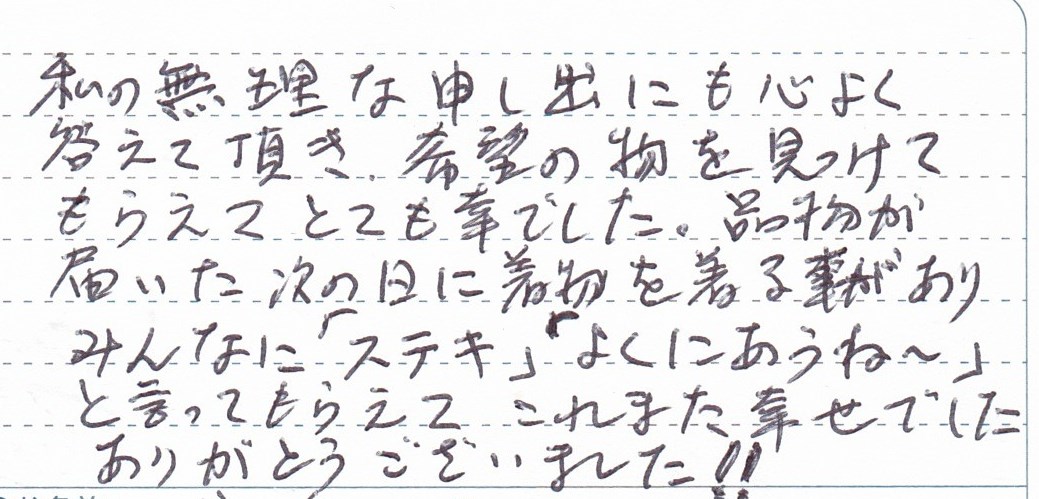 私の無理な申し出にも心よく
答えて頂き、希望の物を見つけて
もらえてとても幸でした。品物が
届いた次の日に着物を着る事があり
みんなに「ステキ」「よくにあうね〜」
と言ってもらえて これまた幸せでした
ありがとうございました!!